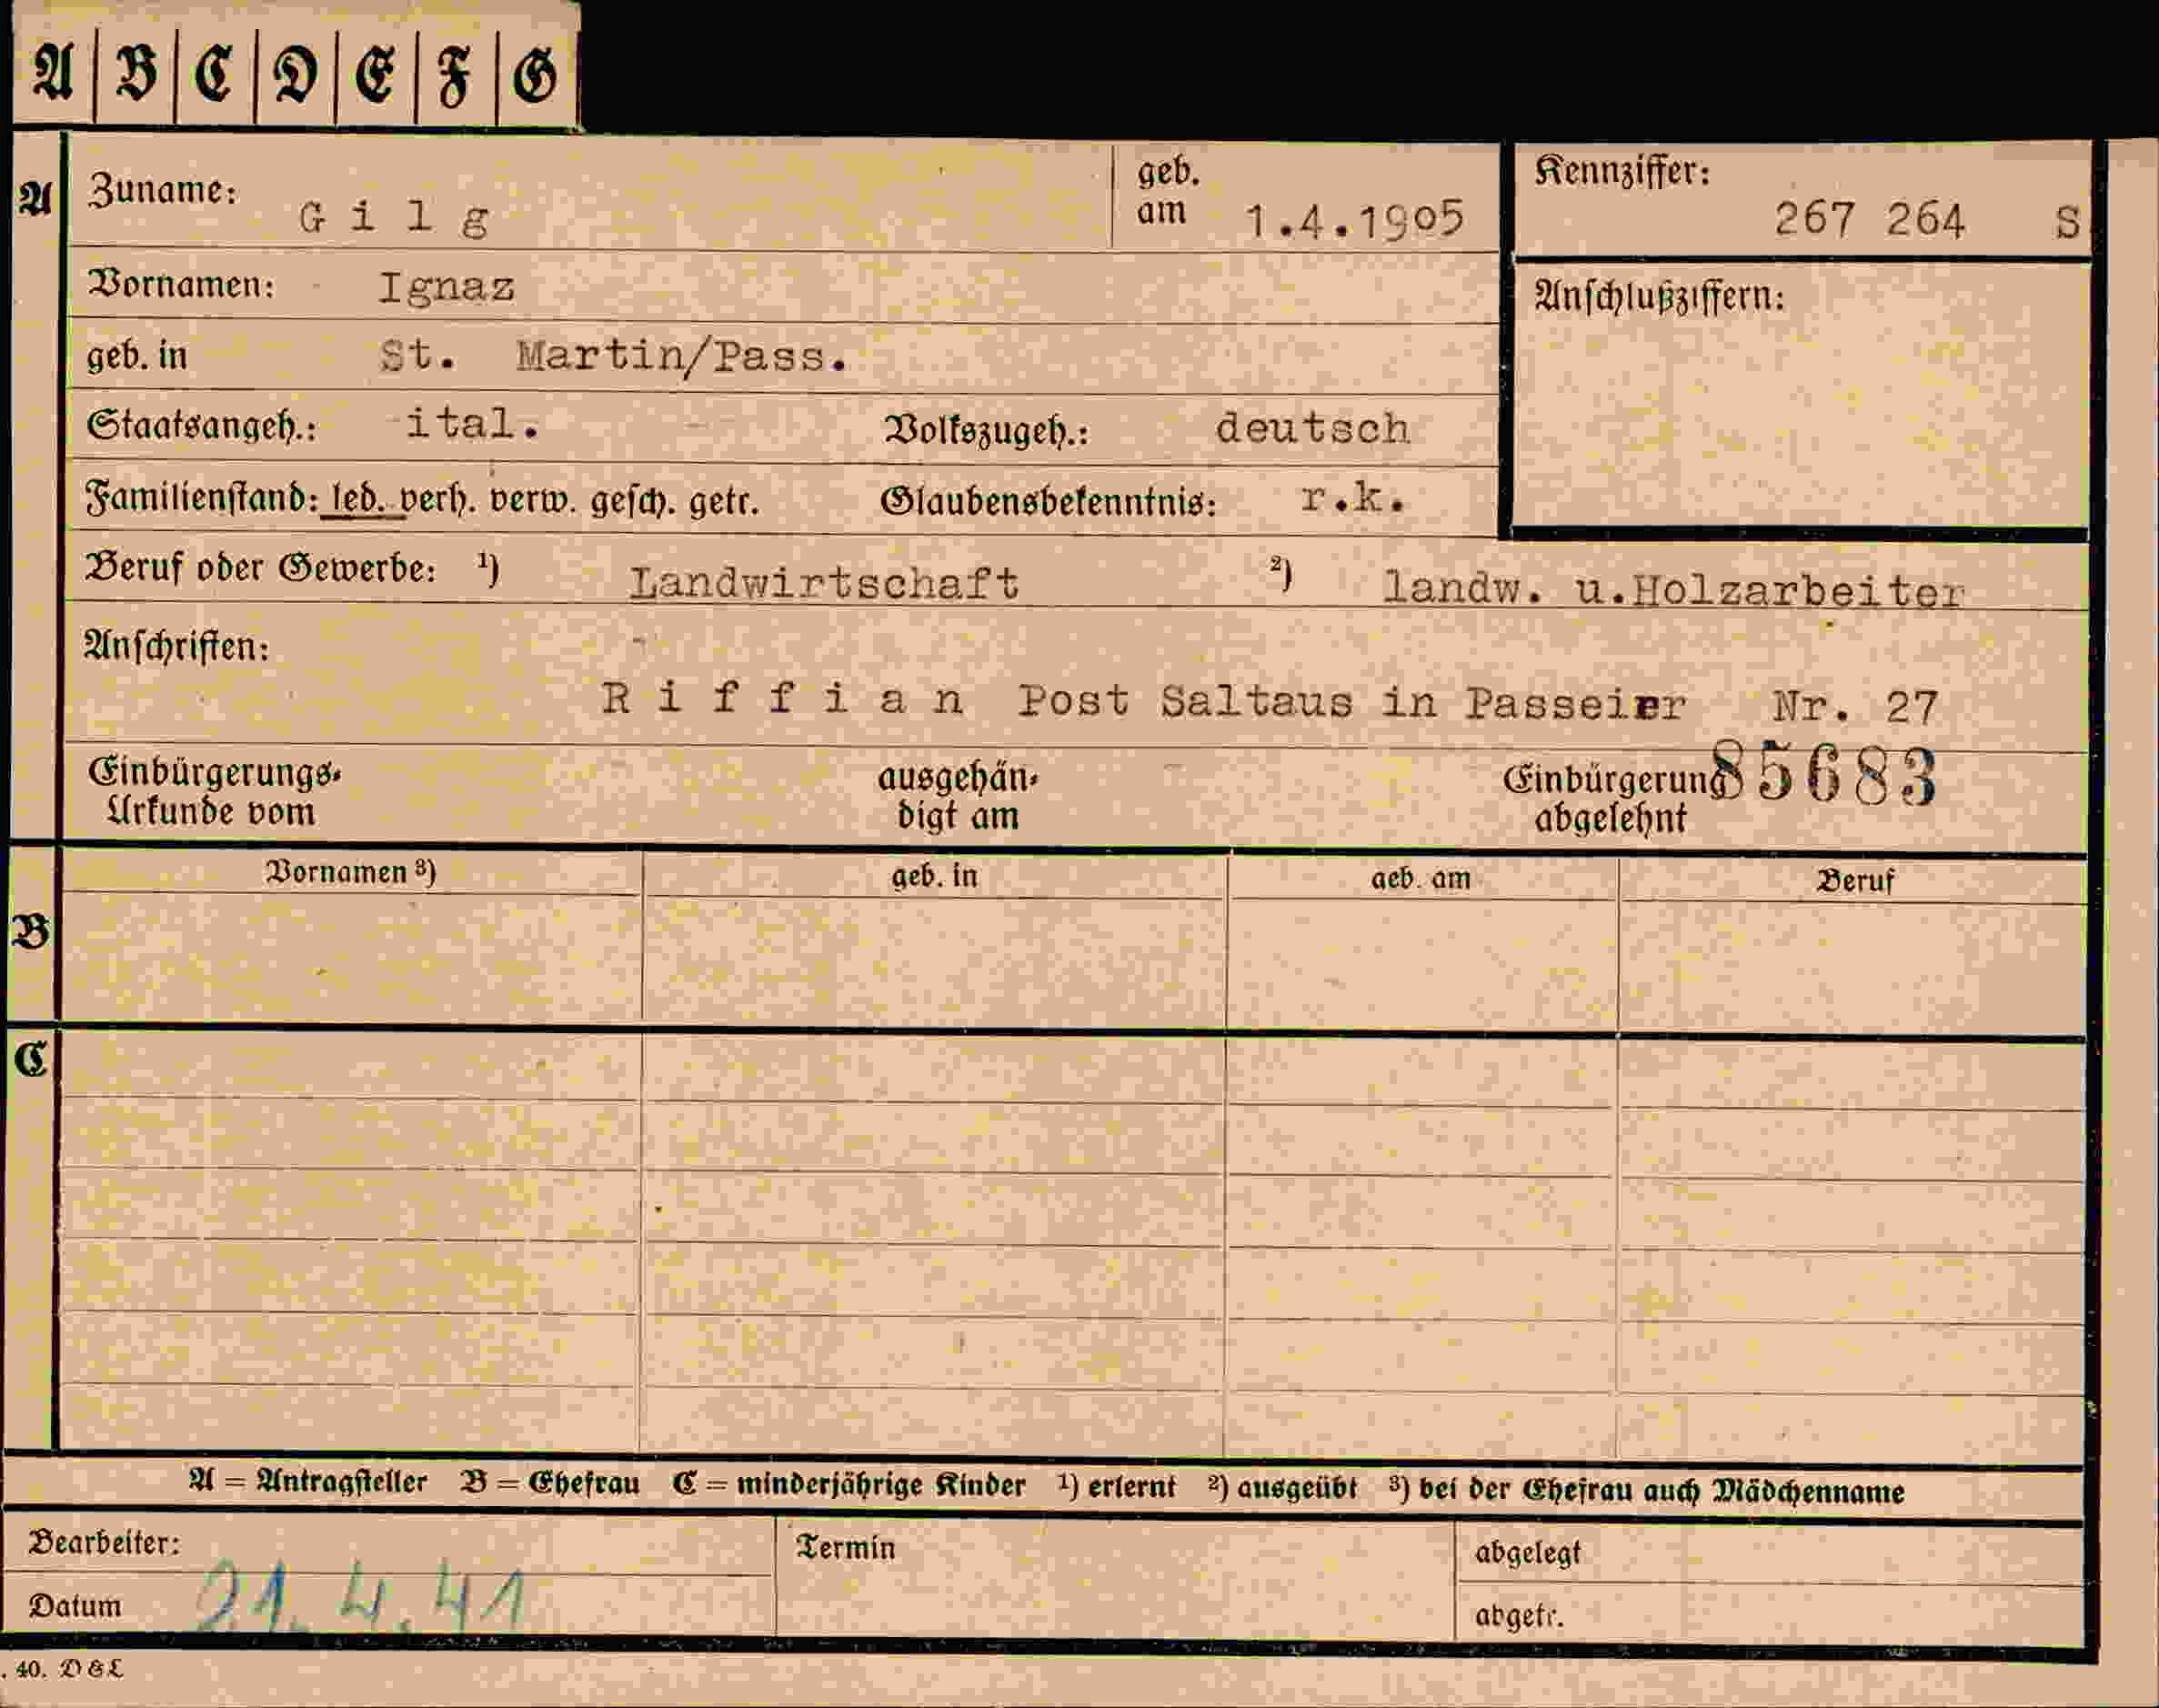 A B C D E F G
A Zuname: Gilg geb. am 1.4.1905 Kennziffer: 267 264 S
Vornamen: Ignaz Anschlußziffern:
geb. in St. Martin/Pass.
Staatsangeh.: ital. Volkszugeh.: deutsch
Familienstand: led. verh. verw. gesch. getr. Glaubensbekenntnis: r.k.
Beruf oder Gewerbe: 1) Landwirtschaft 2) landw. u.Holzarbeiter
Anschriften:
Riffian Post Saltaus in Passeier Nr. 27
Einbürgerungs- ausgehän- Einbürgerung 85683
Urkunde vom digt am abgelehnt
Vornamen 3) geb. in geb. am Beruf
B
C
A = Antragsteller B = Ehefrau C = minderjährige Kinder 1) erlernt 2) ausgeübt 3) bei der Ehefrau auch Mädchenname
Bearbeiter: Termin abgelegt
Datum 21.4.41 abgetr.
. 40. D & L